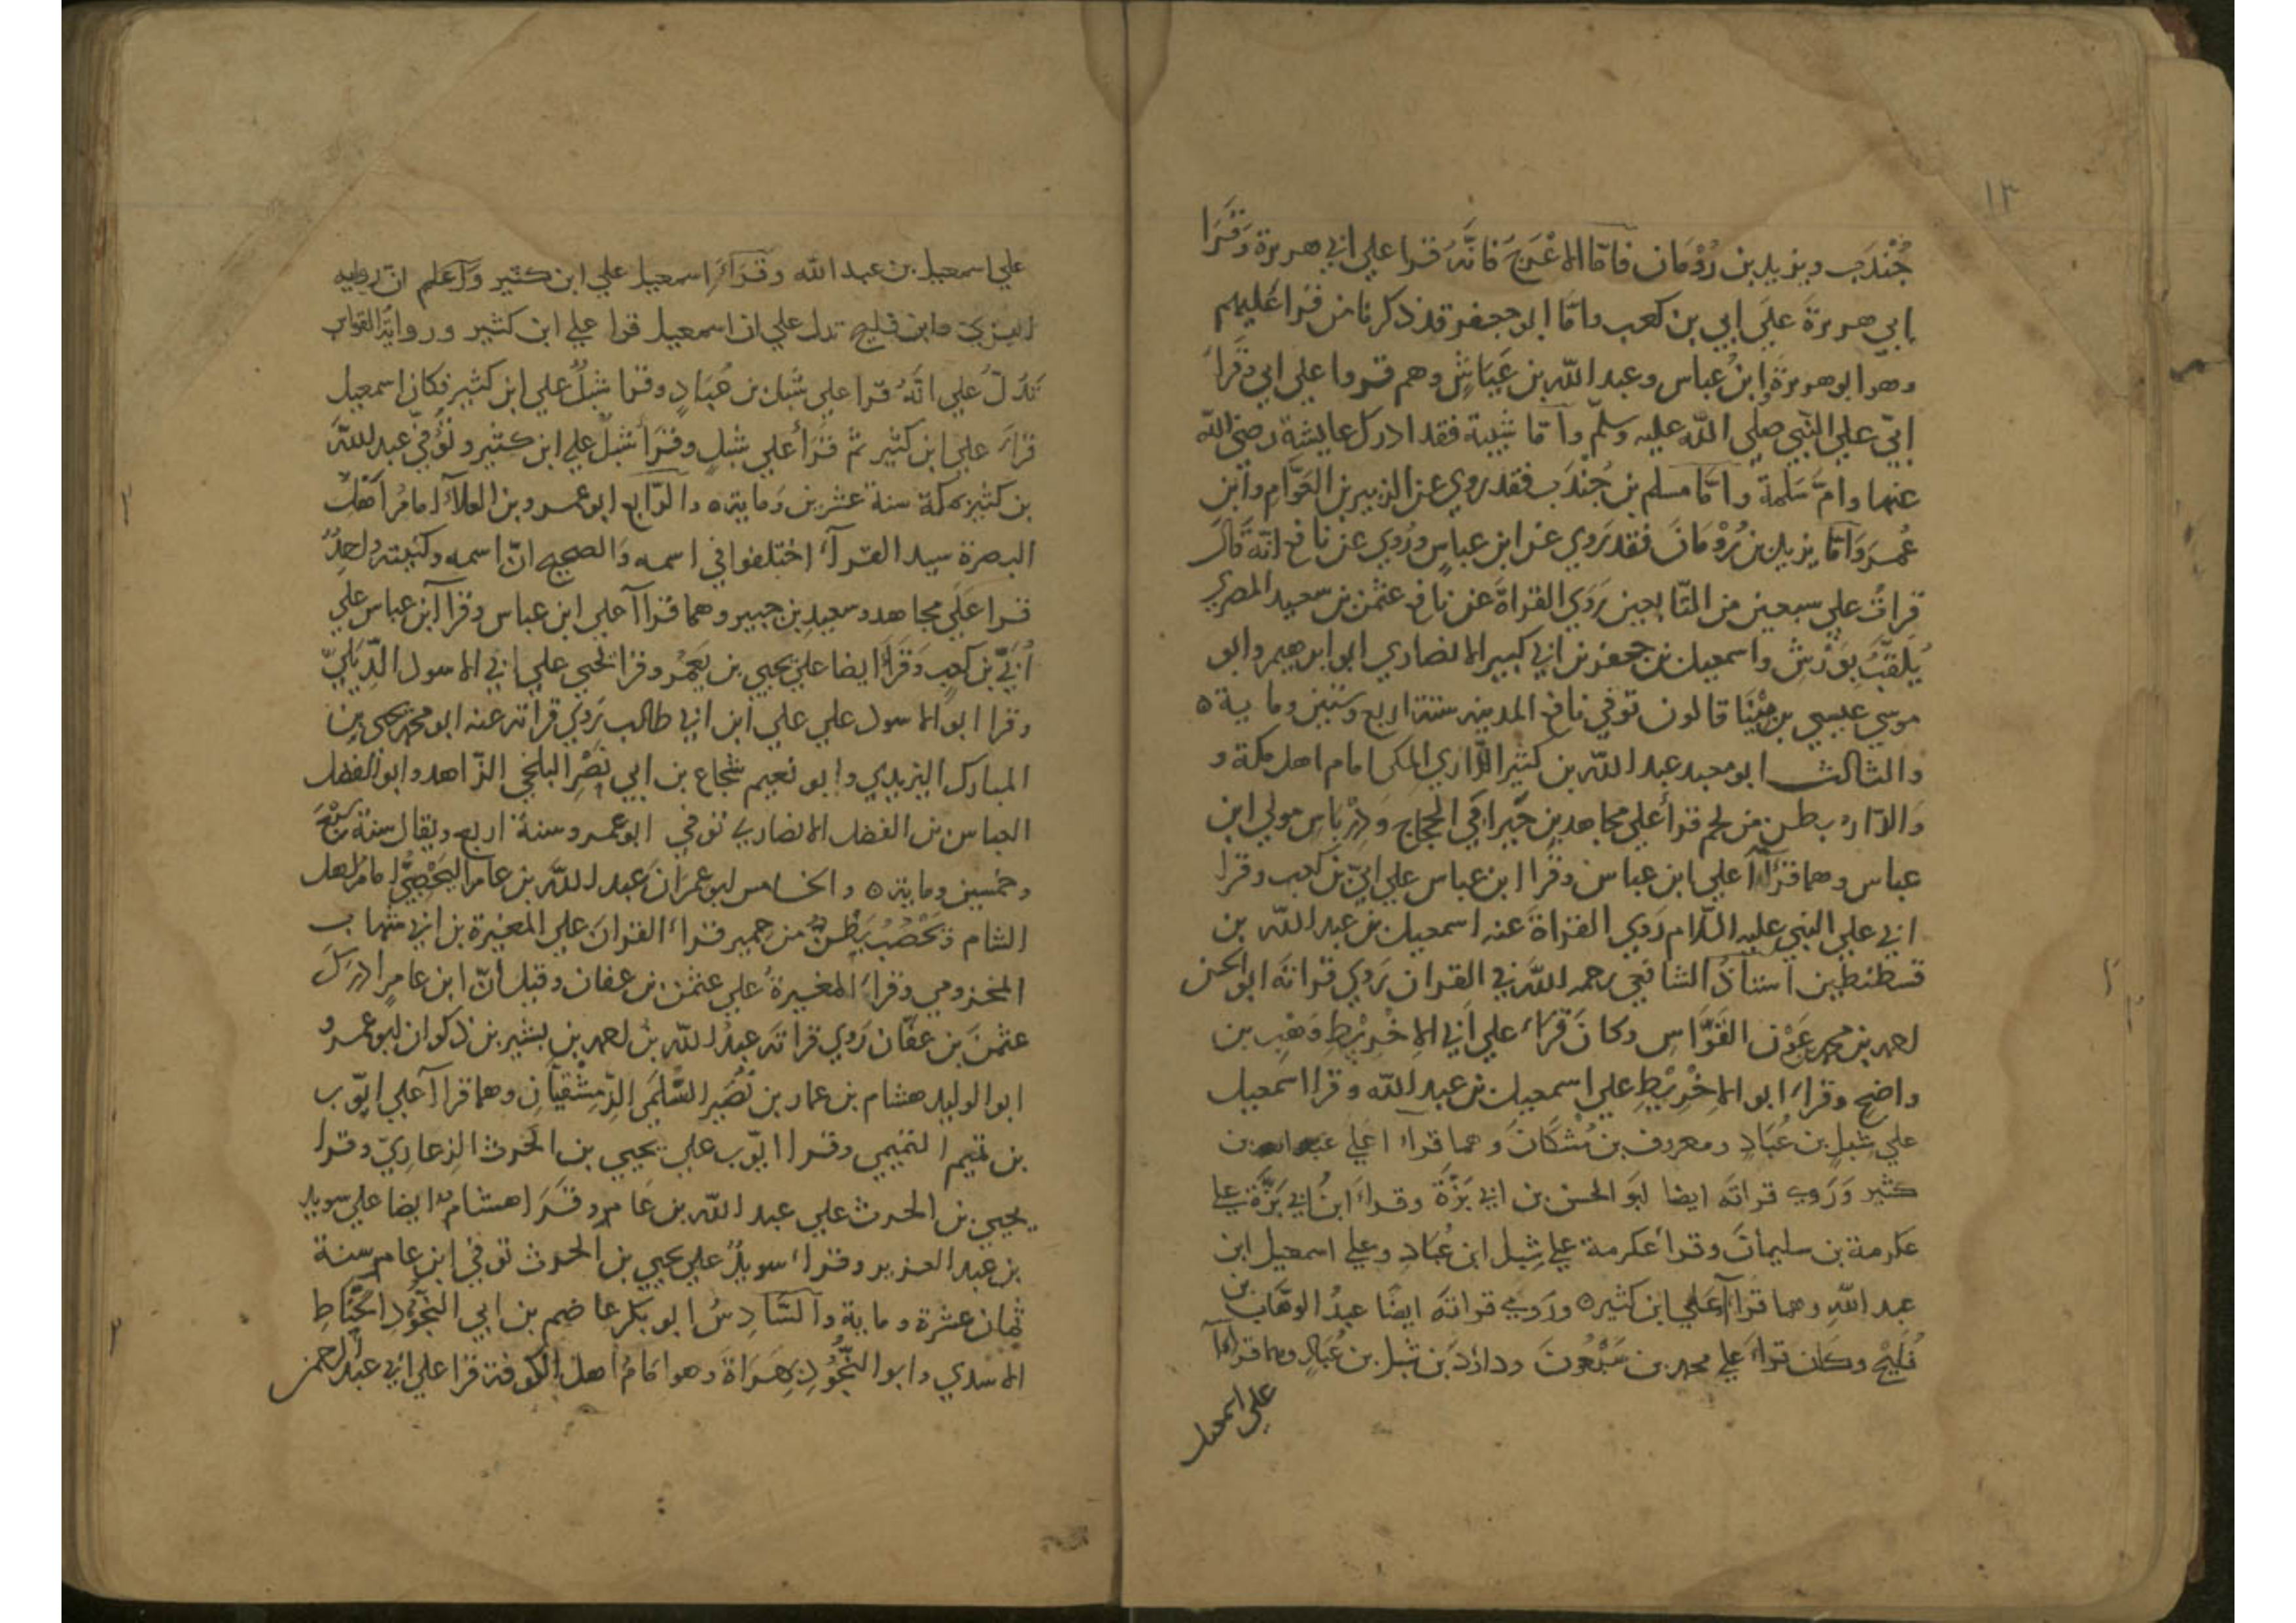 ١٣
جُنْدَب ويزيد بن رُوْمَان فامّا الاعْرَجُ فَانَّهُ قرا علي ابي هريرة وَقَرَا
ابي هريرةَ علَي ابي بن كعب وامّا ابو جعفر قد ذكرنا من قرا عَليهم
وهو ابو هريرةَ وابنُ عباس وعبد اللّه بن عَيَّاشٍ وهم قروا علي ابي وقَراَ
ابيّ علي النّبي صلي اللّه عليه وسلّم وآمّا شيبة فقد ادرك عايشة رضي اللّه
عنها وامَّ سَلمةَ وامَّا مسلم بن جُندَب فقد روي عن الزبير بن العَوَّام وابن
عُمرَ وَامّا يزيد بن رُوْمَانَ فقد رَوي عن ابن عباسٍ ورُوي عن نافع انّه قَالَ
قراتُ علي سبعين من التّابعين رَوَي القراةَ عن نافع عثمن بن سعيد المصري
يُلَقّبُ بِوَرْشٍ واسمعيل بن جعفر بن ابي كبير الانصاري ابو ابرهيم وابو
موسي عيسي بن مِيْنَا قالون توفي نافع المدينه سنة اربع وستين وماية ٥
والثالث ابو معبد عبد اللّه بن كثير الدّاري المكي امام اهل مكة و
وَالدّار بطن من لخم قرأ علي مجاهد بن جَبر ابي الحجاج وَدِرْبَاسٍ مولي ابن
عباس وهما قرَاآ علي ابن عباس وقرا ابن عباس علي ابيّ بن كعب وقرا
ابي علي النبي عليه السّلام رَوي القراةَ عنه اسمعيل بن عبد اللّه بن
قسطنطين استاذُ الشافعي رحمه اللّه في القران رَوي قراتَه ابو الحسن
احمد بن محمد بن عَوْن القَوّاسِ وكانَ قَراءَ علي اَبي الاِخْرِيْطِ وَهْبِ بن
واضح وقراءَ ابو الاِخْرِيْطِ علي اسمعيل بن عبد اللّه وقرا اسمعيل
علي شِبلِ بن عُبَادٍ ومعروف بن مُشكَانَ وهما قراء ا علي عبد الله بن
كثير وَرَوي قراتَه ايضا ابوَ الحسن بن ابي بَزَّةَ وقراءَ ابنُ ابي بَزَّةَ علي
عكرمة بن سليمانَ وقرأ عكرمة علي شِبل ابن عُبَادٍ وعلي اسمعيل ابن
عبد اللّهِ وهما قرا آعَلي ابن كثيرٍ ٥ ورَوي قراتَه ايضًا عبدُ الوهّاب بن
فُلَيْحٍ وكان قراءَ علي محمد بن سَبْعُونَ وداوُدَ بن شبل بن عُبَادٍ وهما قرا آ
علي اسمعيل
علي اسمعيل بن عبد اللّه وقراءَ اسمعيل علي ابن كثير وآعلم انّ رواية
البزي وابن فليح تدل علي ان اسمعيل قرا علي ابن كثير وروايةُ القواس
تَدُلّ علي انَّهُ قرا علي شبل بن عُبَادٍ وقرا شبلٌ علي ابن كثير فكان اسمعيل
قراءَ علي ابن كثير ثم قرَأَ علي شِبلٍ وقرَأَ شبلٌ علي ابن كثير وتُوُفّي عبد اللّه
بن كثير بمكة سنة عشرين وَماية ٥ والرّابع ابو عمرو بن العلاَءِ امامُ اَهْلِ
البصرة سيد القراء اختلفوا في اسمه وَالصحيح انّ اسمه وكنيته واحِدٌ
قرا علَي مجاهد وسعيدِ بن جبير وهما قراآ علي ابن عباس وقرا ابن عباس علي
اُبَيّ بن كعبٍ وَقَراَ ايضا علي يحيي بن يَعْمُر وقرا يحيي علي ابي الاسود الدِّيَليّ
وقرا ابو الاسود علي علي ابن ابي طالب رَوَي قراته عنه ابو محمد يحيي بن
المبارك اليزيدي وابو نعيم شجاع بن ابي نَصْرٍ البلخي الزّاهد وابو الفضل
العباس بن الفضل الانصاري توفي ابو عمرو سنة اربع ويقال سنة سَبْعٍ
وخمسين وماية ٥ والخامس ابو عمرَانَ عبد اللّه بن عامر اليَحْصِبيُّ امامُ اهل
الشام وَيَحْصُبُ بَطْنٌ من حمير قراءَ القرانَ علي المغيرة بن ابي شهاب
المخزومي وقراءَ المغيرةُ علي عثمن بن عفان وقيل انّ ابن عامرٍ ادرَكَ
عثمنَ بن عفّان رَوي قراتَه عبدُ اللّه بن احمد بن بشير بن ذكوان ابو عمرو
ابو الوليد هشام بن عمار بن نُصَيرٍ السُّلَمي الدِّمِشْقيّانِ وهما قراآ علي ايّوب
بن تميم التميمي وقرا ايّوب علي يحيي بن الحرث الذِمارِيّ وقرا
يحيي بن الحرث علي عبد اللّه بن عَامر وقَرَا هشامٌ ايضا علي سويد
بن عبد العزيز وقراءَ سويدٌ علي يحيي بن الحرث توفي ابن عامر سنة
ثمان عشرة وماية وآلسَّادِسُ ابو بكر عاصم بن ابي النجُّودِ الحَنَّاطِ
الاسدي وابو النّجُّودِ بَهْدَلةَ وهو اِمَامُ اهل الكوفة قرا علي ابي عبد الرحمن